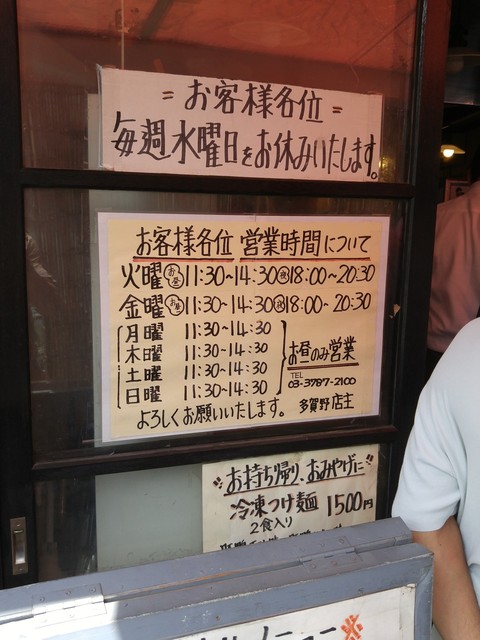 = お客様各位 =
毎週水曜日をお休みいたします。
お客様各位 営業時間について
火曜 お昼 11:30~14:30 夜 18:00~20:30
金曜 お昼 11:30~14:30 夜 18:00~20:30
月曜 11:30~14:30
木曜 11:30~14:30
土曜 11:30~14:30
日曜 11:30~14:30
お昼のみ営業
TEL
03-3787-2100
よろしくお願いいたします。 多賀野店主
お持ち帰り、おみやげに
冷凍つけ麺 1500円
2食入り
メニュー